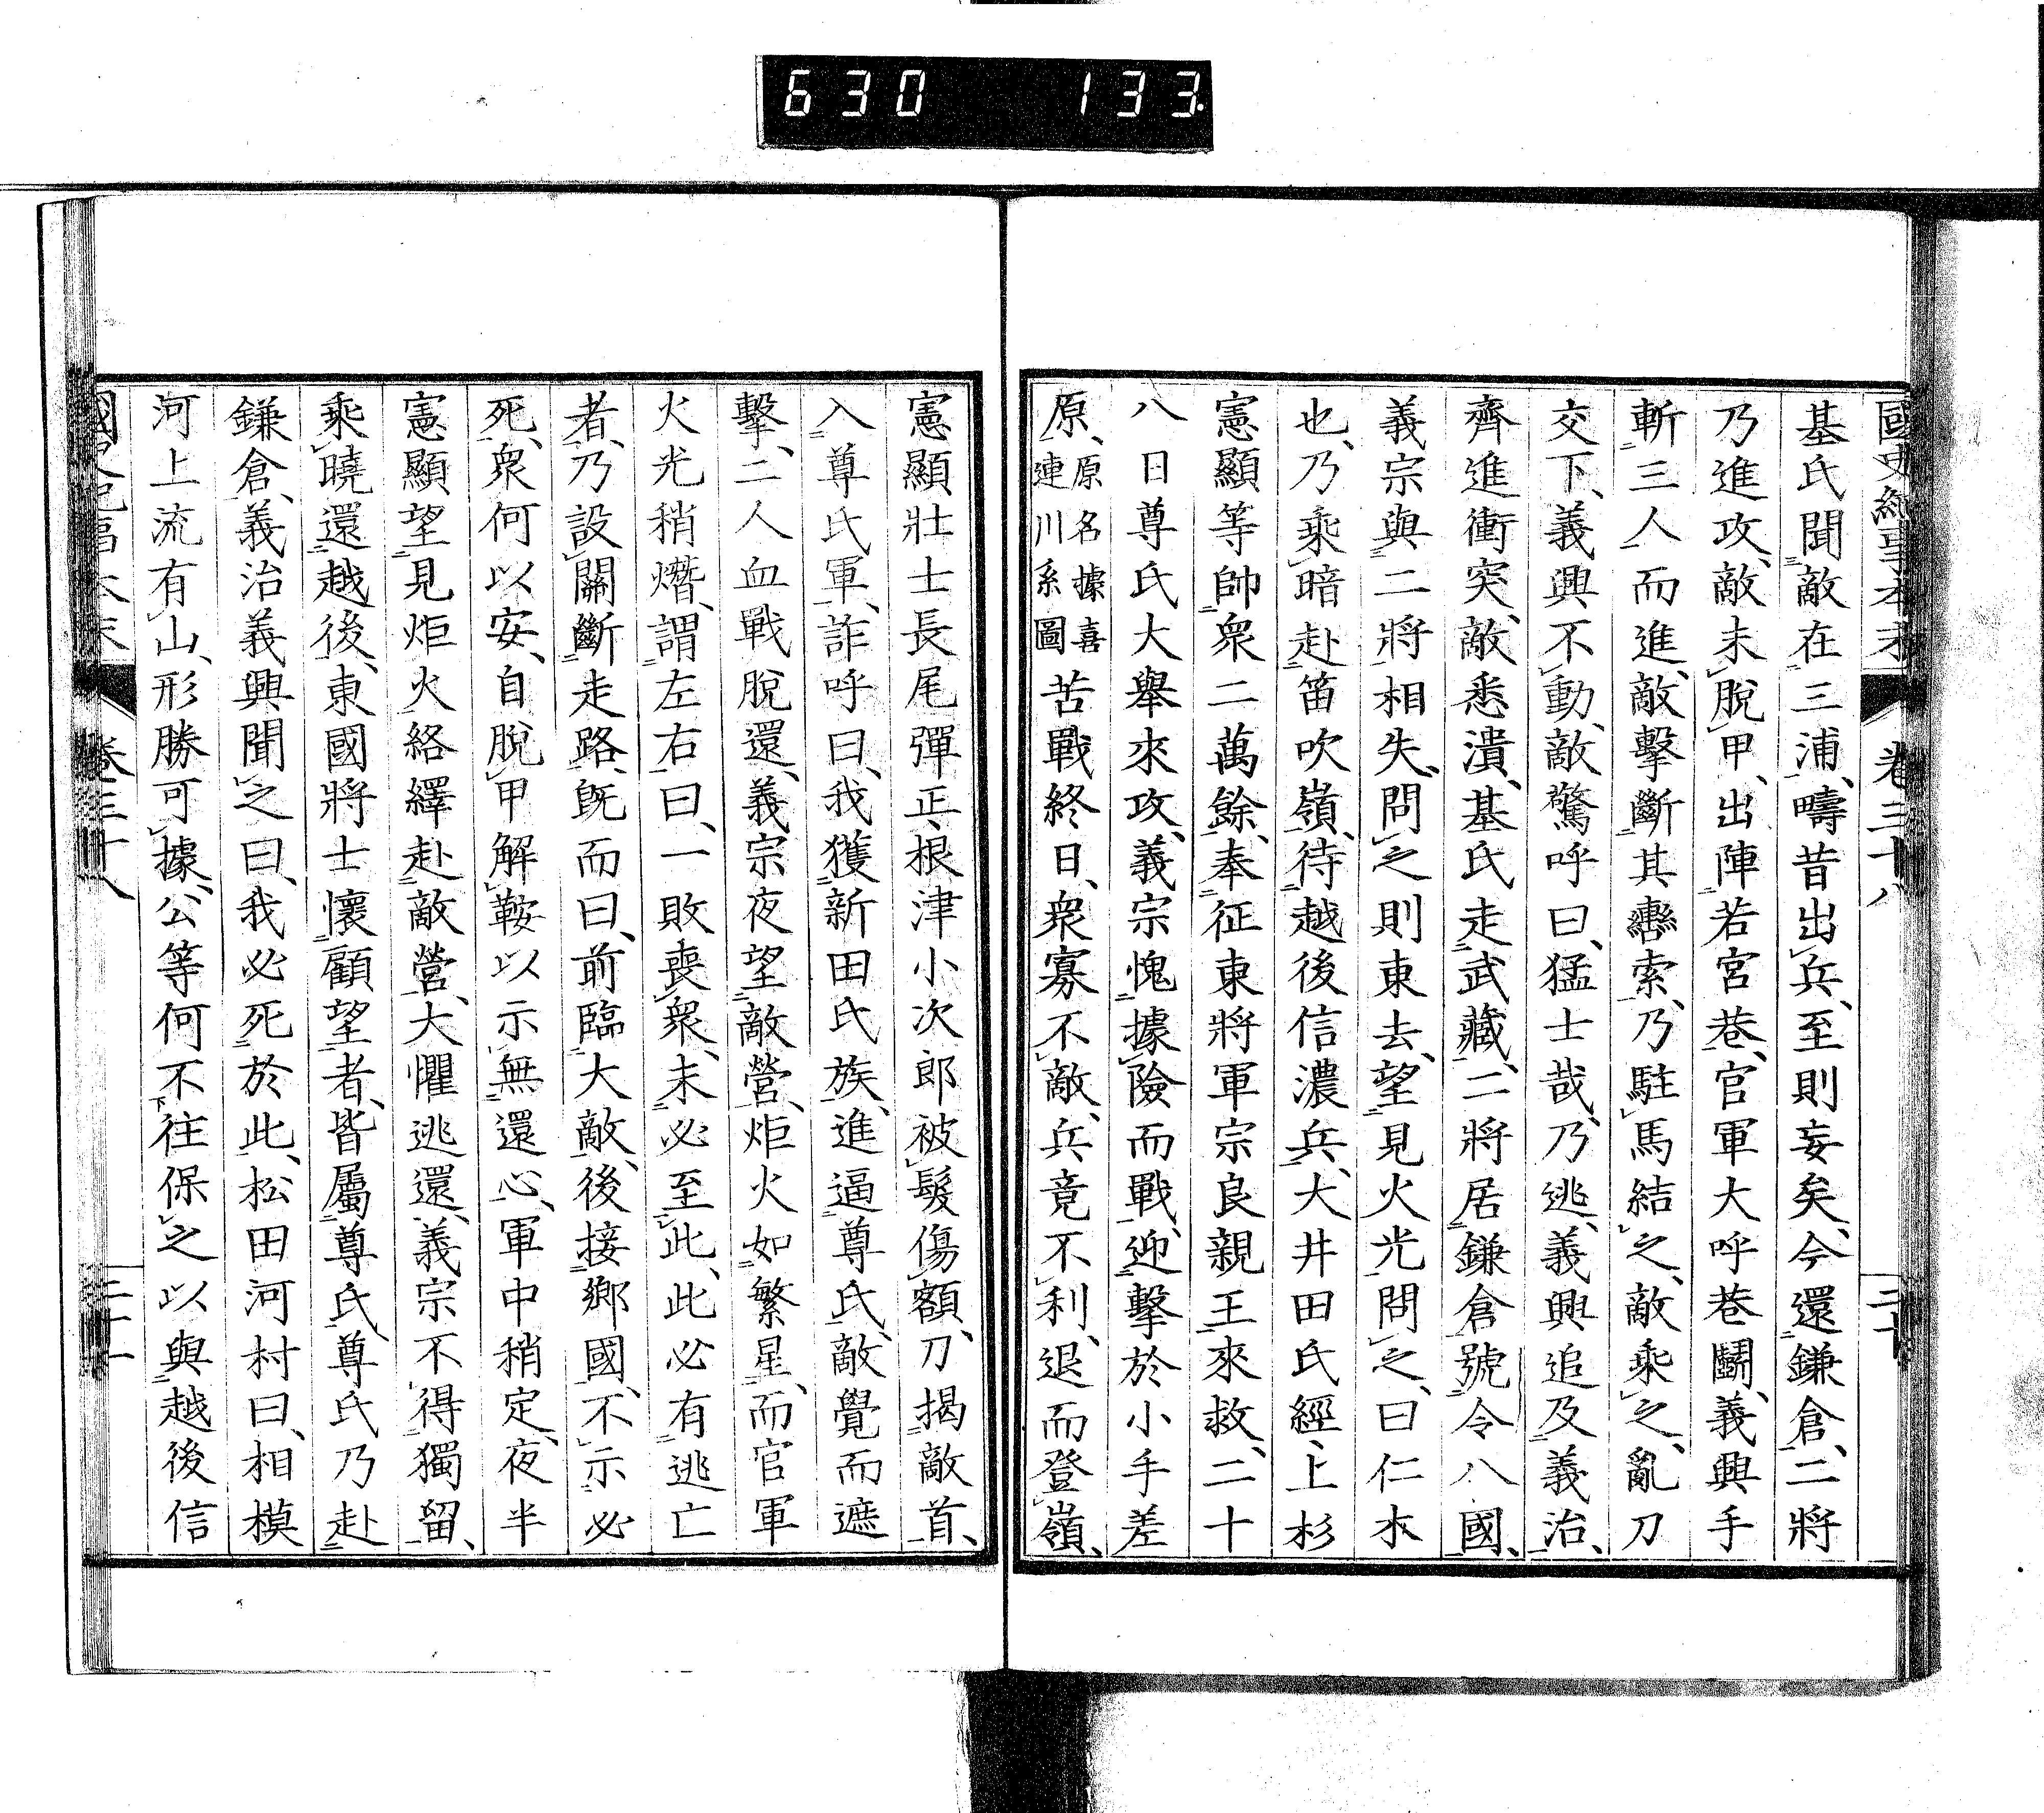 630 133
國史紀事本末 卷三十八
基氏聞敵在三浦、疇昔出兵、至則妄矣、今還鎌倉、二將
乃進攻、敵未脫甲、出陣若宮巷、官軍大呼巷鬪、義興手
斬三人而進、敵擊斷其轡索、乃駐馬結之、敵乘之、亂刀
交下、義興不動、敵驚呼曰、猛士哉、乃逃、義興追及義治、
齊進衝突、敵悉潰、基氏走武藏、二將居鎌倉號令八國、
義宗與二將相失、問之則東去、望見火光、問之、曰仁木
也、乃乘暗赴笛吹嶺、待越後信濃兵、大井田氏經、上杉
憲顯等帥衆二萬餘、奉征東將軍宗良親王來救、二十
八日尊氏大舉來攻、義宗愧據險而戰、迎擊於小手差
原、原名據喜連川系圖苦戰終日、衆寡不敵、兵竟不利、退而登嶺、
憲顯壯士長尾彈正、根津小次郎被髮傷額、刀揭敵首、
入尊氏軍、詐呼曰、我獲新田氏族、進逼尊氏、敵覺而遮
擊、二人血戰脫還、義宗夜望敵營、炬火如繁星、而官軍
火光稍熸、謂左右曰、一敗喪衆、未必至此、此必有逃亡
者、乃設關斷走路、旣而曰、前臨大敵、後接鄉國、不示必
死、衆何以安、自脫甲解鞍以示無還心、軍中稍定、夜半
憲顯望見炬火絡繹赴敵營、大懼逃還、義宗不得獨留、
乘曉還越後、東國將士懷顧望者、皆屬尊氏、尊氏乃赴
鎌倉、義治義興聞之曰、我必死於此、松田河村曰、相模
河上流有山、形勝可據、公等何不往保之以與越後信
國史紀事本末 卷三十八